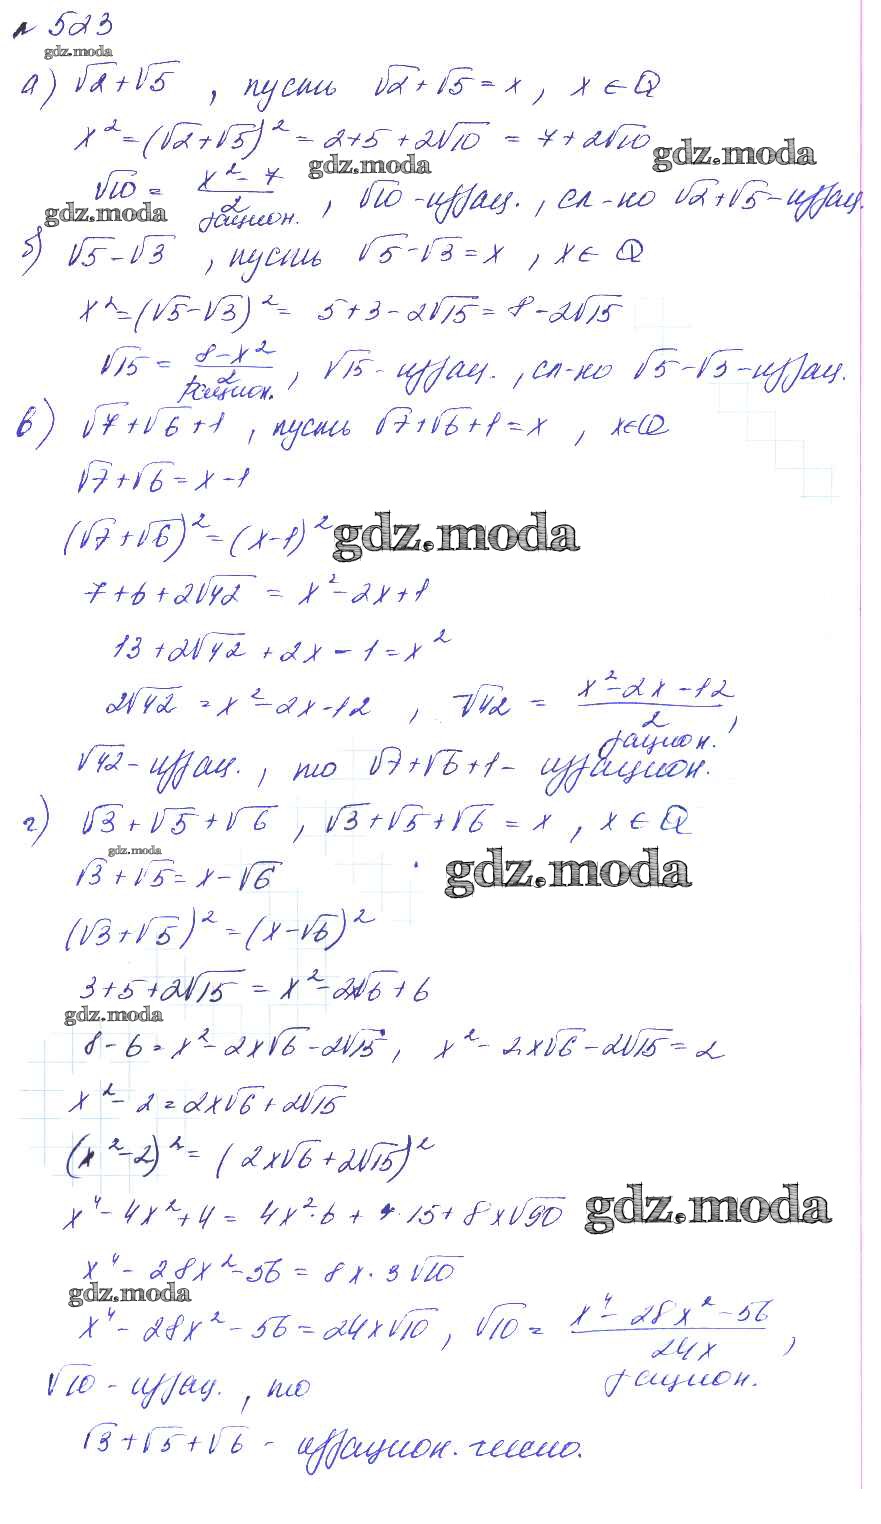 № 523
gdz.moda
а) √2+√5 , пусть √2+√5 = x , x ∈ Q
x² = (√2+√5)² = 2+5+2√10 = 7+2√10
gdz.moda gdz.moda
√10 = (x²-7)/2 рацион. , √10 - иррац. , сл-но √2+√5 - иррац.
gdz.moda
б) √5-√3 , пусть √5-√3 = x , x ∈ Q
x² = (√5-√3)² = 5+3-2√15 = 8-2√15
√15 = (8-x²)/2 рацион. , √15 - иррац. , сл-но √5-√3 - иррац.
в) √7+√6+1 , пусть √7+√6+1 = x , x ∈ Q
√7+√6 = x-1
(√7+√6)² = (x-1)²
gdz.moda
7+6+2√42 = x²-2x+1
13+2√42+2x-1 = x²
2√42 = x²-2x-12 , √42 = (x²-2x-12)/2 рацион. ,
√42 - иррац. , то √7+√6+1 - иррацион.
г) √3+√5+√6 , √3+√5+√6 = x , x ∈ Q
gdz.moda
√3+√5 = x-√6
gdz.moda
(√3+√5)² = (x-√6)²
3+5+2√15 = x²-2x√6+6
gdz.moda
8-6 = x²-2x√6-2√15 , x²-2x√6-2√15 = 2
x²-2 = 2x√6+2√15
(x²-2)² = (2x√6+2√15)²
x⁴-4x²+4 = 4x²·6+4·15+8x√90
gdz.moda
x⁴-28x²-56 = 8x·3√10
gdz.moda
x⁴-28x²-56 = 24x√10 , √10 = (x⁴-28x²-56)/24x рацион. ,
√10 - иррац. , то
√3+√5+√6 - иррацион. число.